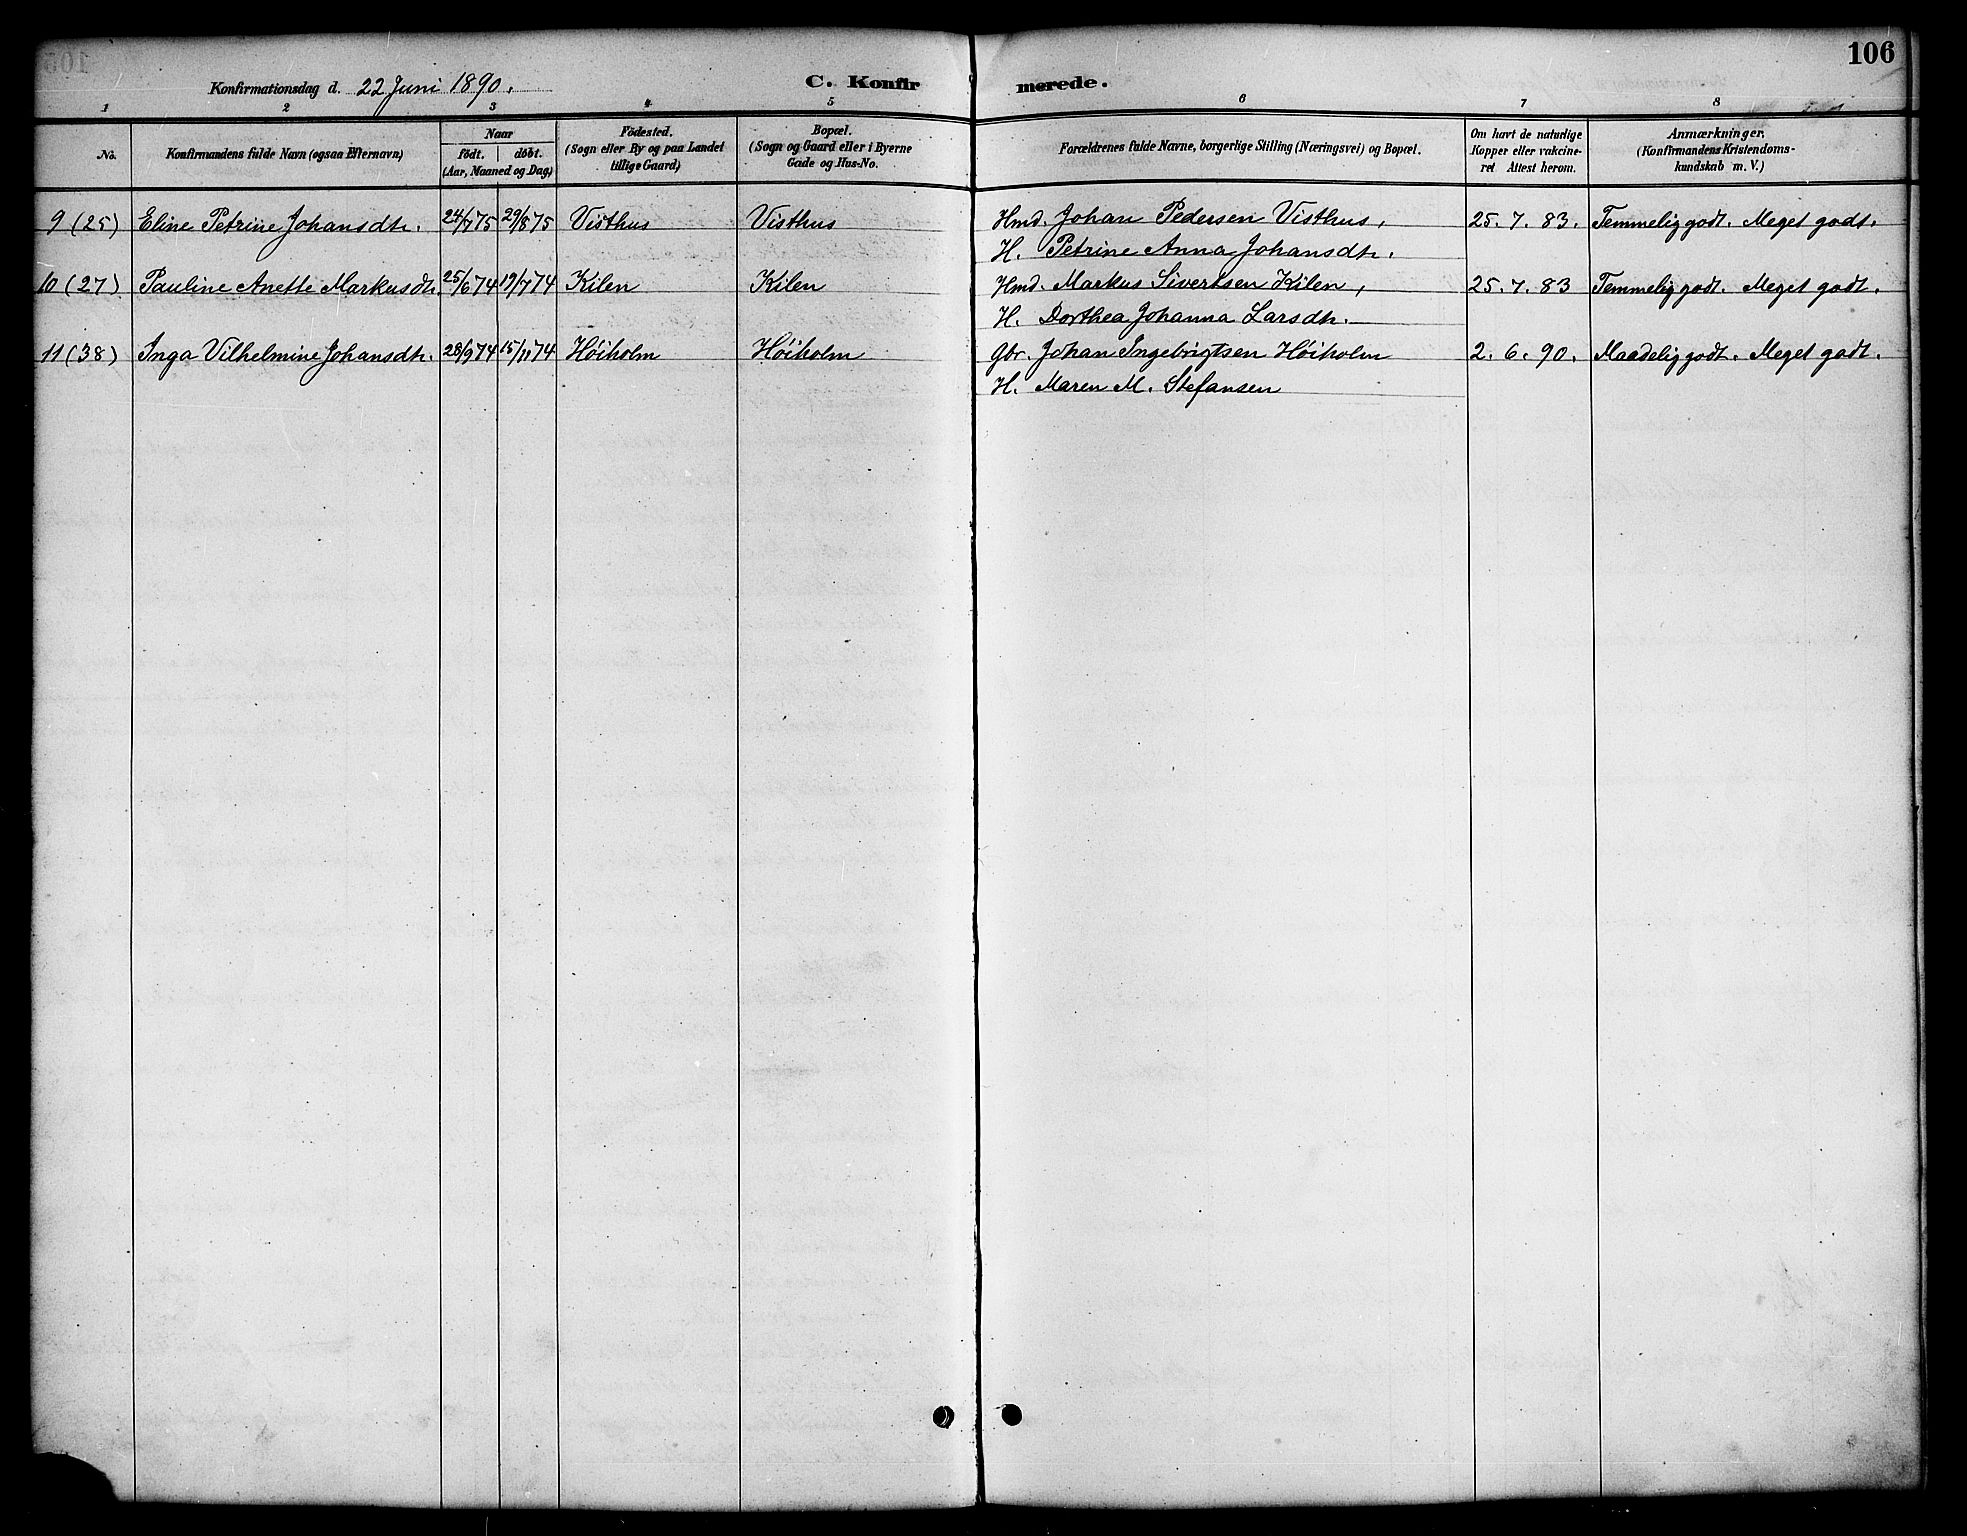 106
Konfirmationsdag d. 22 Juni 1890.
C. Konfirmerede.
1 2 3 4 5 6 7 8
No.
Konfirmandens fulde Navn (ogsaa Efternavn)
Naar
födt. döbt.
(Aar, Maaned og Dag)
Födested.
(Sogn eller By og paa Landet
tillige Gaard)
Bopæl.
(Sogn og Gaard eller i Byerne
Gade og Hus-No.
Forældrenes fulde Navne, borgerlige Stilling (Næringsvei) og Bopæl.
Om havt de naturlige
Kopper eller vakcine-
ret Attest herom.
Anmærkninger.
(Konfirmandens Kristendoms-
kundskab m. V.)
9 (25) Eline Petrine Johansdtr. 24/7 75 29/8 75 Visthus Visthus Hmd. Johan Pedersen Visthus, 25.7.83. Temmelig godt. Meget godt.
H. Petrine Anna Johansdtr.
10 (27) Pauline Anette Markusdtr. 25/6 74 19/7 74 Kilen Kilen Hmd. Markus Sivertsen Kilen, 25.7.83 Temmelig godt. Meget godt.
H. Dorthea Johanna Larsdtr.
11 (38) Inga Vilhelmine Johansdtr. 28/9 74 15/11 74 Høiholm Høiholm Gbr. Johan Ingebrigtsen Høiholm 2.6.90. Maadelig godt. Meget godt.
H. Maren M. Stefansen